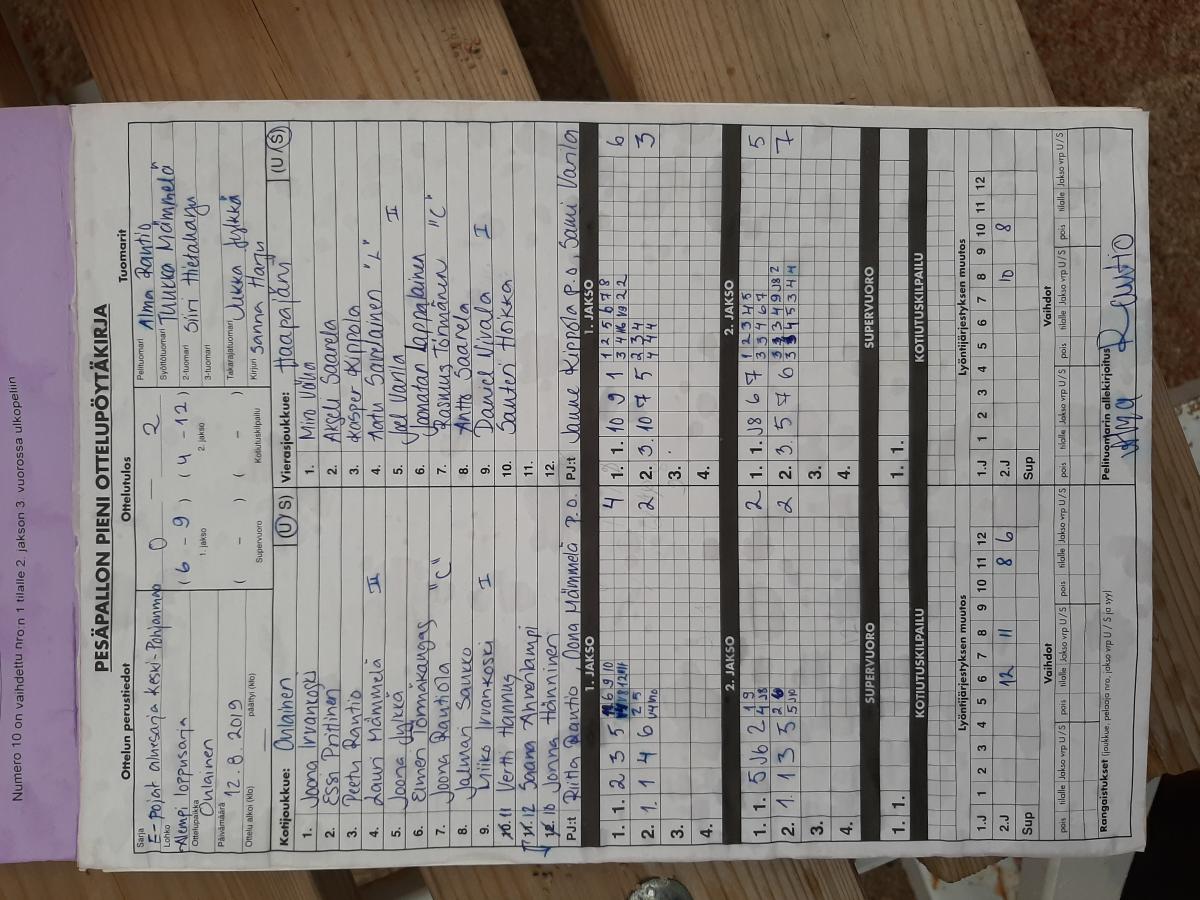 Numero 10 on vaihdettu nro:n 1 tilalle 2. jakson 3 vuorossa ulkopeliin
PESÄPALLON PIENI OTTELUPÖYTÄKIRJA
Ottelun perustiedot
Sarja
E-pojat aluesarja Keski-Pohjanmaa
Lohko
Alempi loppusarja
Ottelupaikka
Oulainen
Päivämäärä 12.8.2019
Ottelu alkoi (klo) päättyi (klo)
Ottelutulos
0 — 2
(6 - 9) (4 - 12)
1. jakso 2. jakso
( - ) ( - )
Supervuoro Kotiutuskilpailu
Tuomarit
Pelituomari Alma Rantio
Syöttötuomari Tuukka Mämmelä
2-tuomari Siiri Hietaharju
3-tuomari
Takarajatuomari Jukka Jylkkä
Kirjuri Sanna Harju
Kotijoukkue: Oulainen (U/S)
1. Joona Irvankoski
2. Essi Pottinen
3. Peetu Rantio
4. Lauri Mämmelä II
5. Joona Jylkkä
6. Elmeri Törmäkangas
7. Joona Rautiola "C"
8. Jalmari Saukko
9. Miiko Irvankoski I
11 Vertti Hannus
12 Saana Ahnehlampi
10 Jonna Hänninen
PJ:t Riitta Rautio, Oona Mämmelä P.O.
Vierasjoukkue: Haapajärvi (U/S)
1. Miro
2. Akseli Saarela
3. Kasper Kippola
4. Aatu Savolainen "L"
5. Joel Varila I
6. Joonatan Lappalainen
7. Rasmus Törmänen "C"
8. Antto Saarela
9. Daniel Nivala I
10. Santeri Hoikka
11.
12.
PJ:t Janne Kippola p.o, Sami Varila
1. JAKSO
1. 1. 2 3 5 6 9 10 4
2. 1. 1 4 6 2 5 2
3.
4.
1. JAKSO
1. 1. 10 9 1 1 2 5 6 7 8 6
2. 3. 10 7 5 2 3 4 3
4 4 4
3.
4.
2. JAKSO
1. 1. 5 J6 2 2 1 9 2
2. 1. 1 3 5 2
3.
4.
2. JAKSO
1. 1. J8 6 7 1 2 3 4 5 5
3 3 4 6 7
2. 3. 5 7 6 7
3.
4.
SUPERVUORO
1. 1.
SUPERVUORO
1. 1.
KOTIUTUSKILPAILU
KOTIUTUSKILPAILU
Lyöntijärjestyksen muutos
1.J 1 2 3 4 5 6 7 8 9 10 11 12
2.J 12 11 8 6
Sup
Lyöntijärjestyksen muutos
1.J 1 2 3 4 5 6 7 8 9 10 11 12
2.J 10 8
Sup
Vaihdot
pois tilalle Jakso vrp U / S pois tilalle Jakso vrp U / S pois tilalle Jakso vrp U / S
Vaihdot
pois tilalle Jakso vrp U / S pois tilalle Jakso vrp U / S pois tilalle Jakso vrp U / S
Rangaistukset (joukkue, pelaaja nro, jakso vrp, U / S ja syy)
Pelituomarin allekirjoitus
Alma Rautio